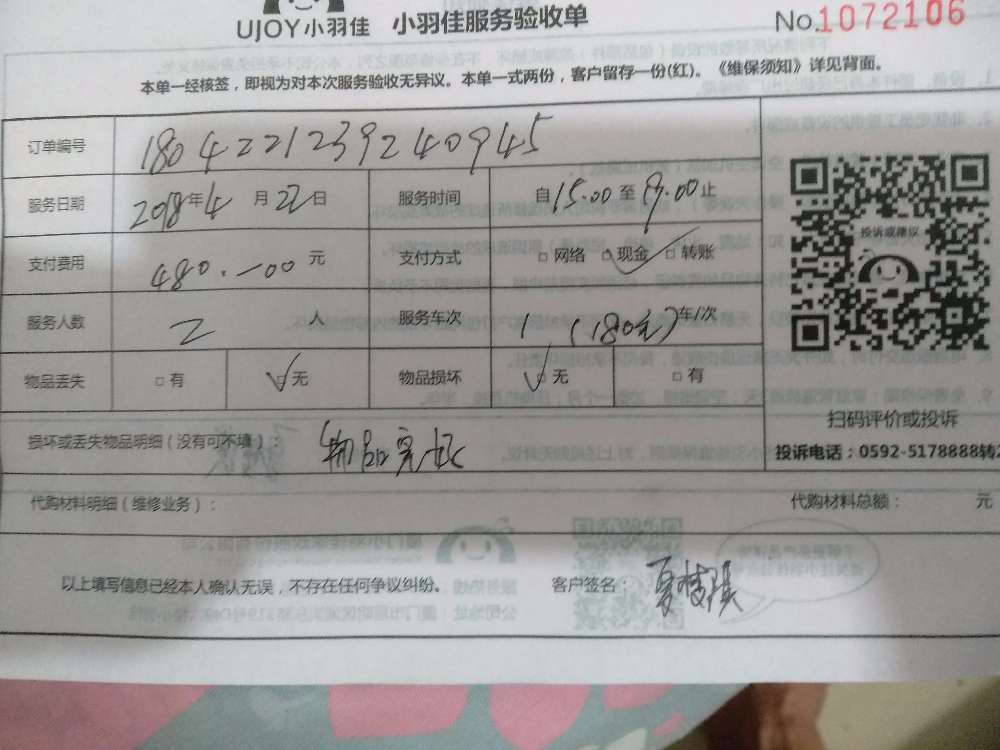 UJOY小羽佳 小羽佳服务验收单 No.1072106
本单一经核签，即视为对本次服务验收无异议。本单一式两份，客户留存一份(红)。《维保须知》详见背面。
订单编号 180422123924 0945
服务日期 2018年4月22日 服务时间 自15.00至19.00止
投诉或建议
支付费用 480.-00元 支付方式 □网络 □现金 □转账
服务人数 2人 服务车次 1(180元)车/次
物品丢失 □有 □无 物品损坏 □无 □有
扫码评价或投诉
损坏或丢失物品明细（没有可不填）： 物品完好
投诉电话：0592-5178888转2
代购材料明细（维修业务）： 代购材料总额： 元
以上填写信息已经本人确认无误，不存在任何争议纠纷。 客户签名：